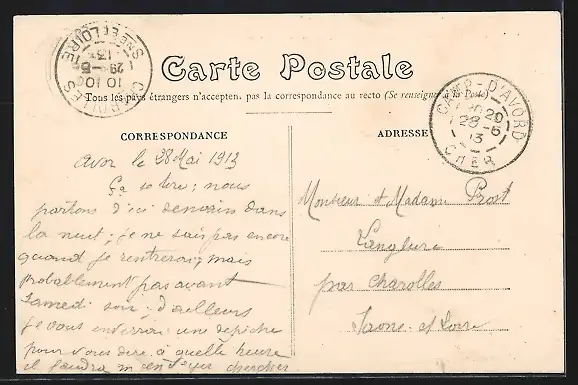 SNE ET LOIRE
CHAROLLES
10 10
29-5
13
Carte Postale
Tous les pays étrangers n'acceptent pas la correspondance au recto (Se renseigner à la Poste)
CAMP-D'AVORD
28-5
13
CHER
CORRESPONDANCE
ADRESSE
Avor le 28 Mai 1913
nous
partons d'ici demain dans
la nuit, je ne sais pas encore
quand je rentrerai, mais
probablement pas avant
Samedi soir; d'ailleurs
je vous enverrai une dépêche
pour vous dire à quelle heure
il faudra m'envoyer chercher
Monsieur et Madame Prost
Langlure
par Charolles
Saone-et-Loire